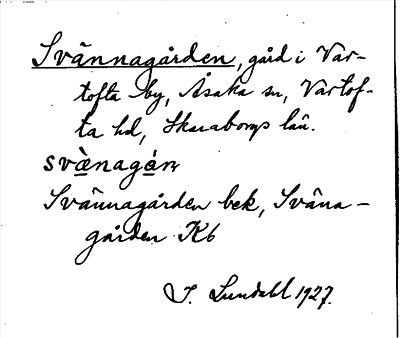 Svännagården, gård i Var-
tofta by, Åsaka sn, Vartof-
ta hd, Skaraborgs län.
svæ̀nagǻn,
Svännagården bek, Sväna-
gården Kb
J. Lundahl 1927.